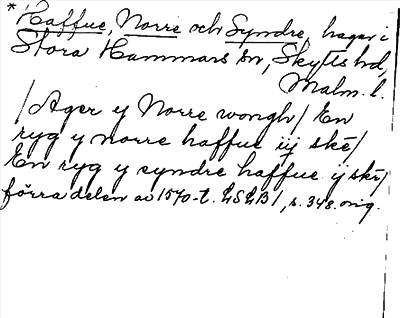 * Haffue, Norre och Syndre, hagar i
Stora Hammars sn, Skytts hd,
Malm. l.
/Ager y Norre wongh/ En
ryg y norre haffue iij skē/
En ryg y syndre haffue ij skē/
förra delen av 1570-t. LSLB1, s. 348. orig.